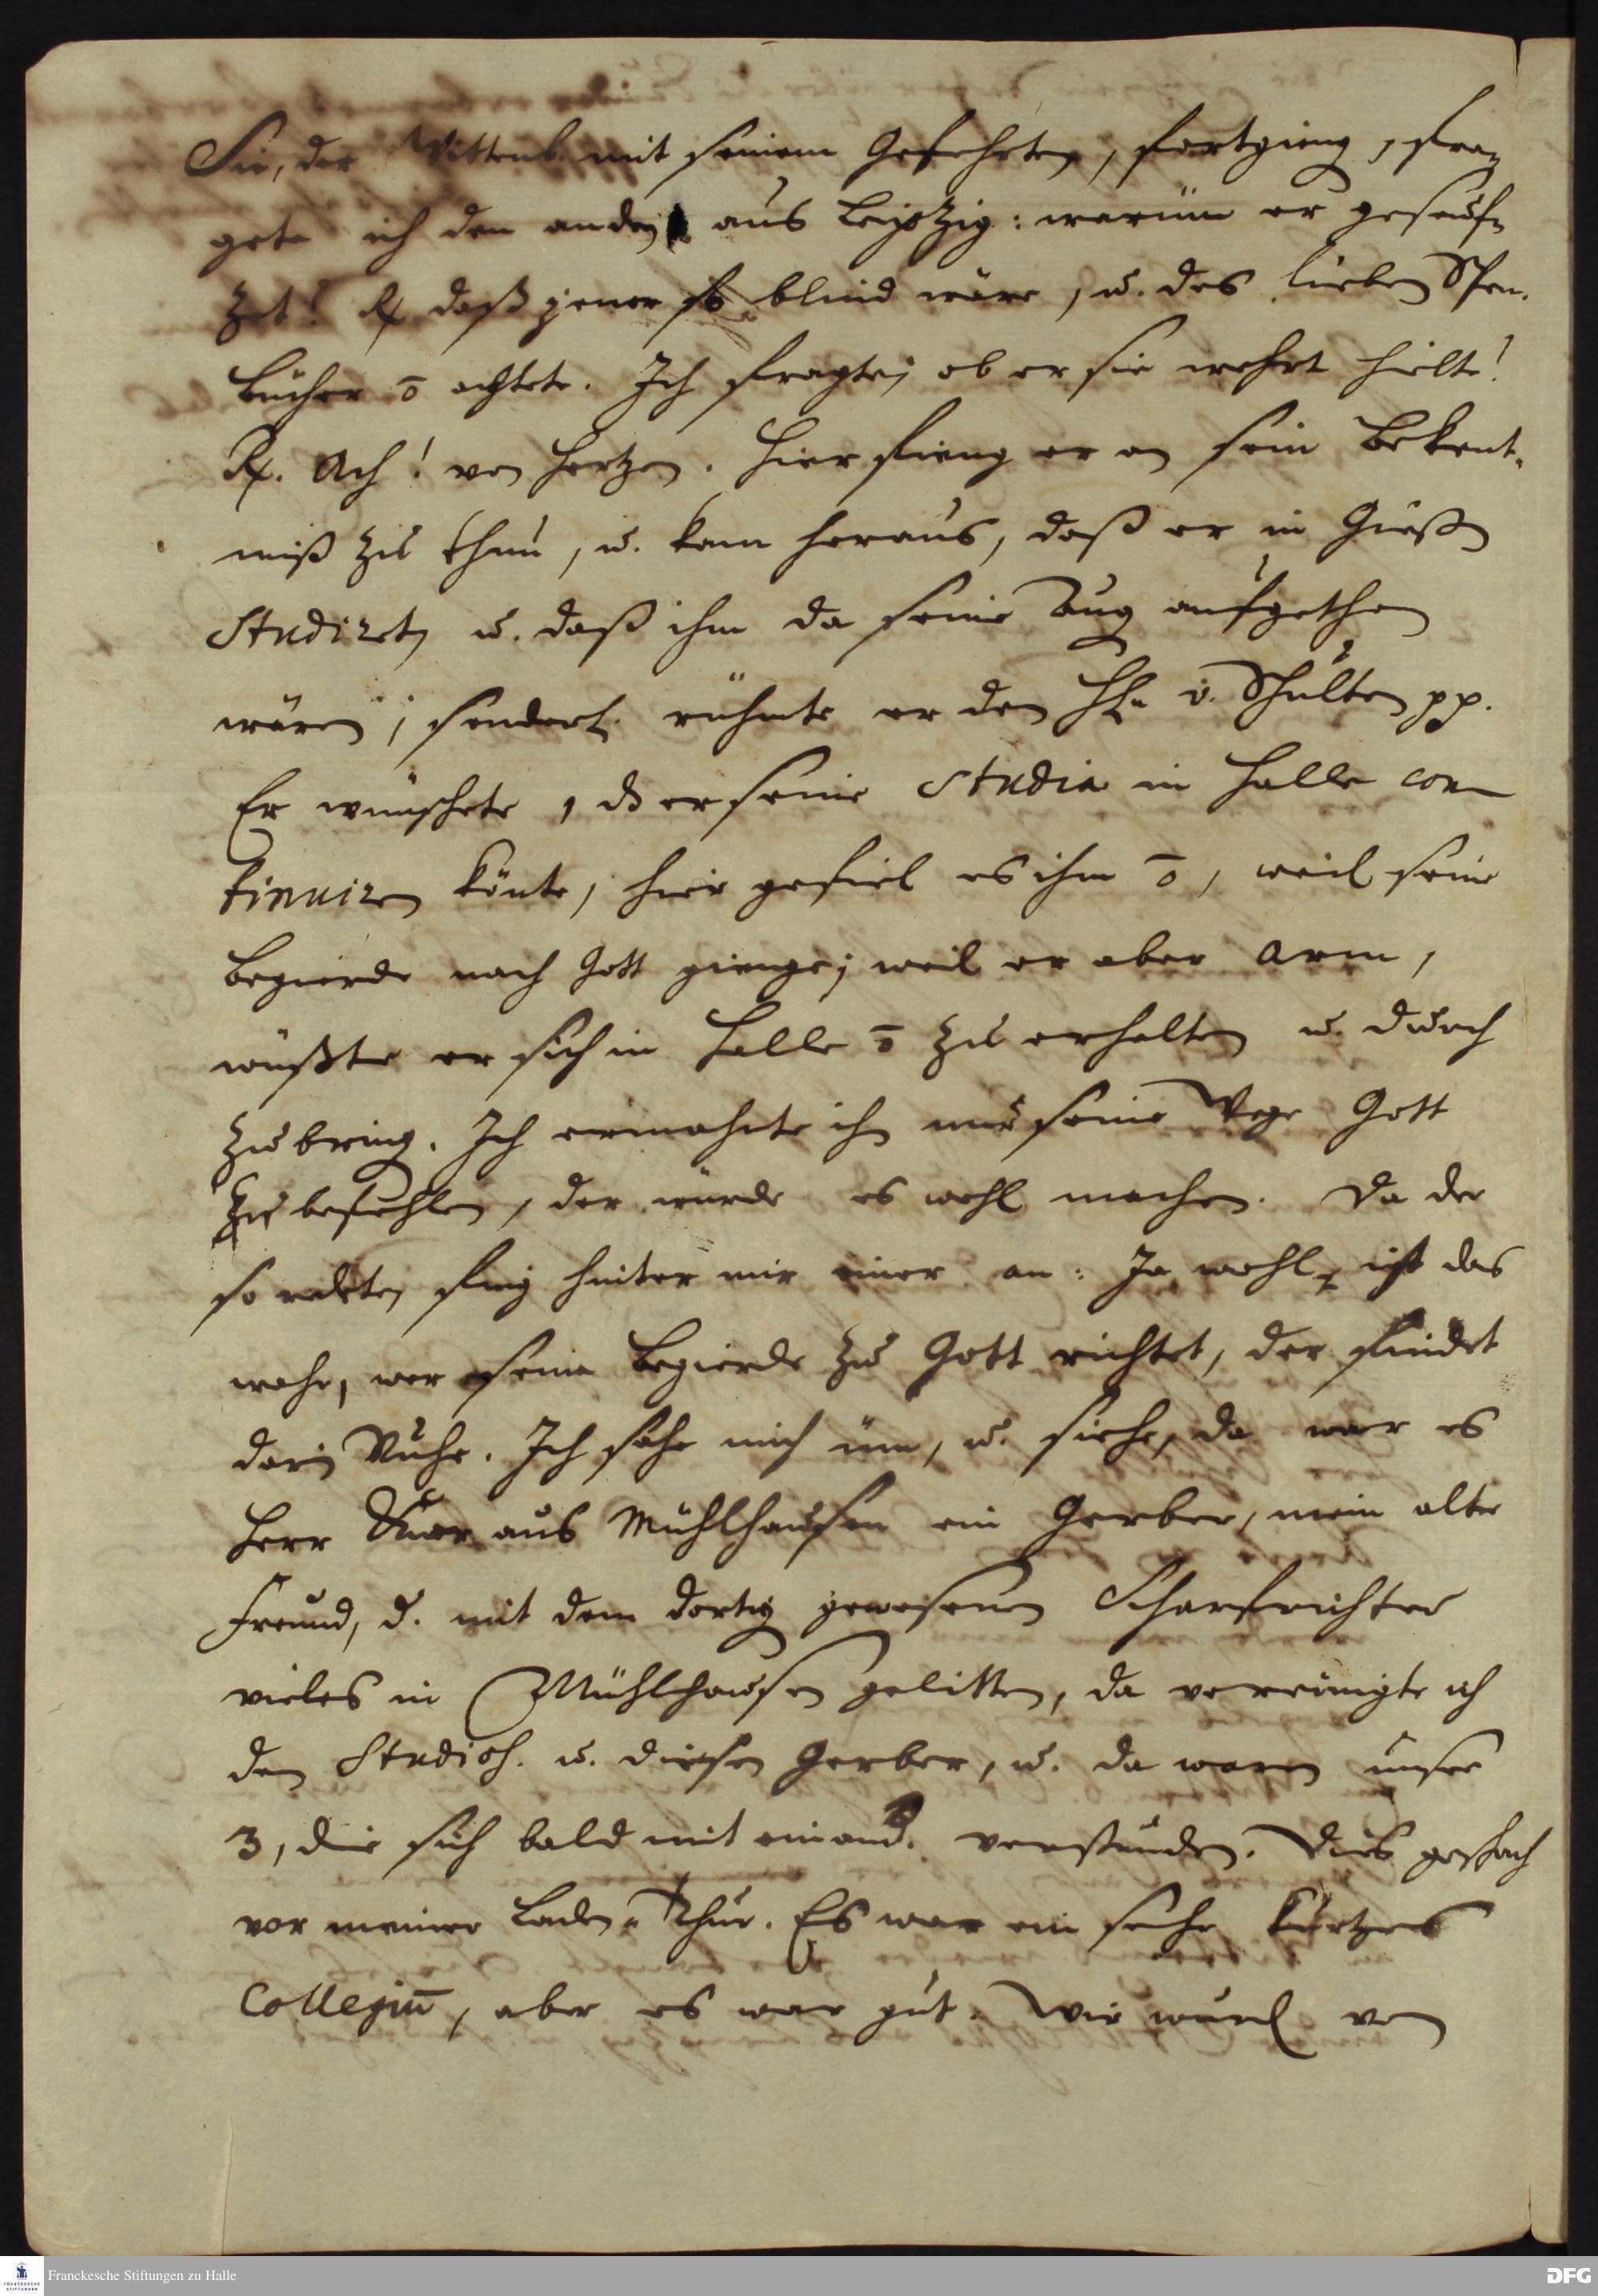 Sie, der Wittenb. mit seinem Gefehrten, fortgieng, fra-
gete ich den andern aus Leipzig: warüm er geseuf-
zet? R daß jener so blind wäre, u. des lieben Spen.
Bücher ō achtete. Ich fragte, ob er sie wehrt hielte?
R. Ach! von Hertzen. Hier fieng er an sein Bekent-
niß zu thun, u. kam heraus, daß er in Gießen
Studiret, u. daß ihm da seine Augen aufgethan
wären, sonderl. rühmte er den H. v. Schulten pp.
Er wünschete, dß er seine Studia in Halle con-
tinuiren könte, hier gefiel es ihm ō, weil seine
Begierde nach Gott gienge, weil er aber arm,
wüßte er sich in Halle ō zu erhalten u. durch
zubringen. Ich ermahnte ihn nur seine Wege Gott
zu befehlen, der würde es wohl machen. Da der
so redete, fing hinter mir einer an: Ja wohl, ist das
wahr, wer seine Begierde zu Gott richtet, der findet
darin Ruhe. Ich sahe mich üm, u. siehe, da war es
Herr aus Mühlhausen ein Gerber, mein alter
Freund, d. mit dem dortig gewesenen Scharfrichter
vieles in Mühlhausen gelitten, da vereinigte ich
den Studios. u. diesen Gerber, u. da waren unser
3, die sich bald mit einand. verstunden. Dies geschach
vor meiner Laden-Thür. Es war ein sehr kurtzes
Collegiū, aber es war gut. Wir wurd von
Franckesche Stiftungen zu Halle
DFG
FRANCKESCHE
STIFTUNGEN